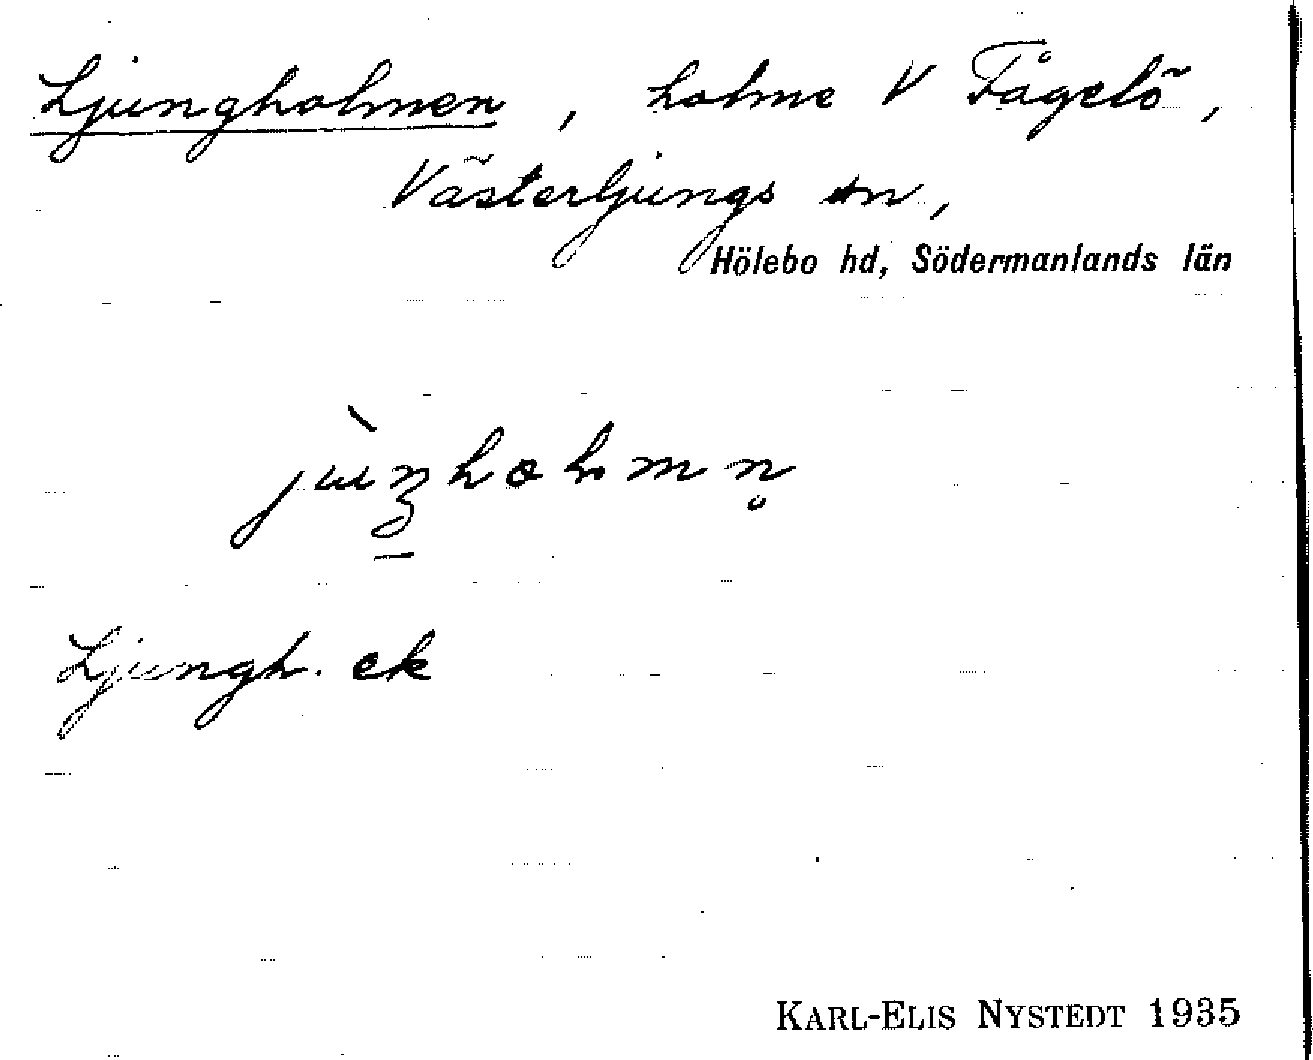 Ljungholmen, holme V Fågelö,
Västerljungs sn,
Hölebo hd, Södermanlands län
Ljungh. ek
KARL-ELIS NYSTEDT 1935